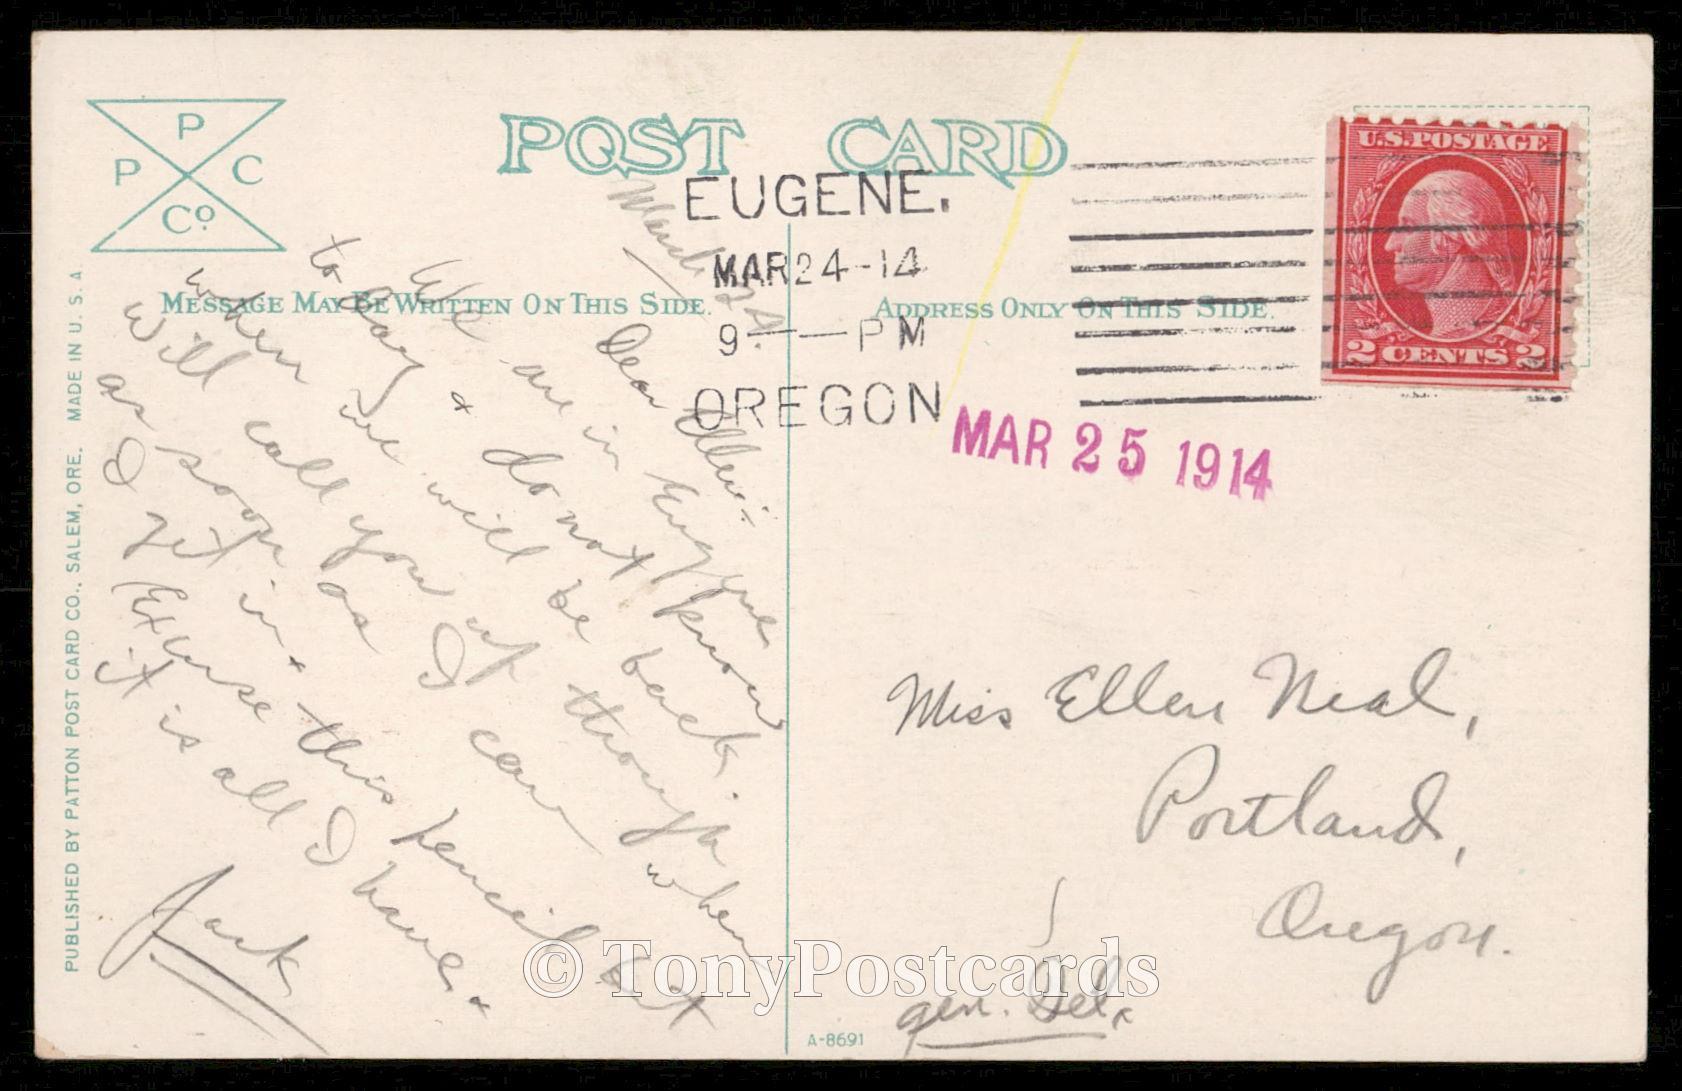 P
P C
Co.
POST CARD
MESSAGE MAY BE WRITTEN ON THIS SIDE.
ADDRESS ONLY ON THIS SIDE.
PUBLISHED BY PATTON POST CARD CO., SALEM, ORE. MADE IN U. S. A
EUGENE.
MAR 24-14
9 - PM
OREGON
U.S. POSTAGE
2 CENTS 2
MAR 25 1914
March 24
Dear Ellen:-
We are in Eugene
to day & do not know
when we will be back.
Will call you up though
as soon as I can when
I get in.
Excuse this pencil but
it is all I have.
Jack
Miss Ellen Neal,
Portland,
Oregon.
gen. Del.
A-8691
© TonyPostcards